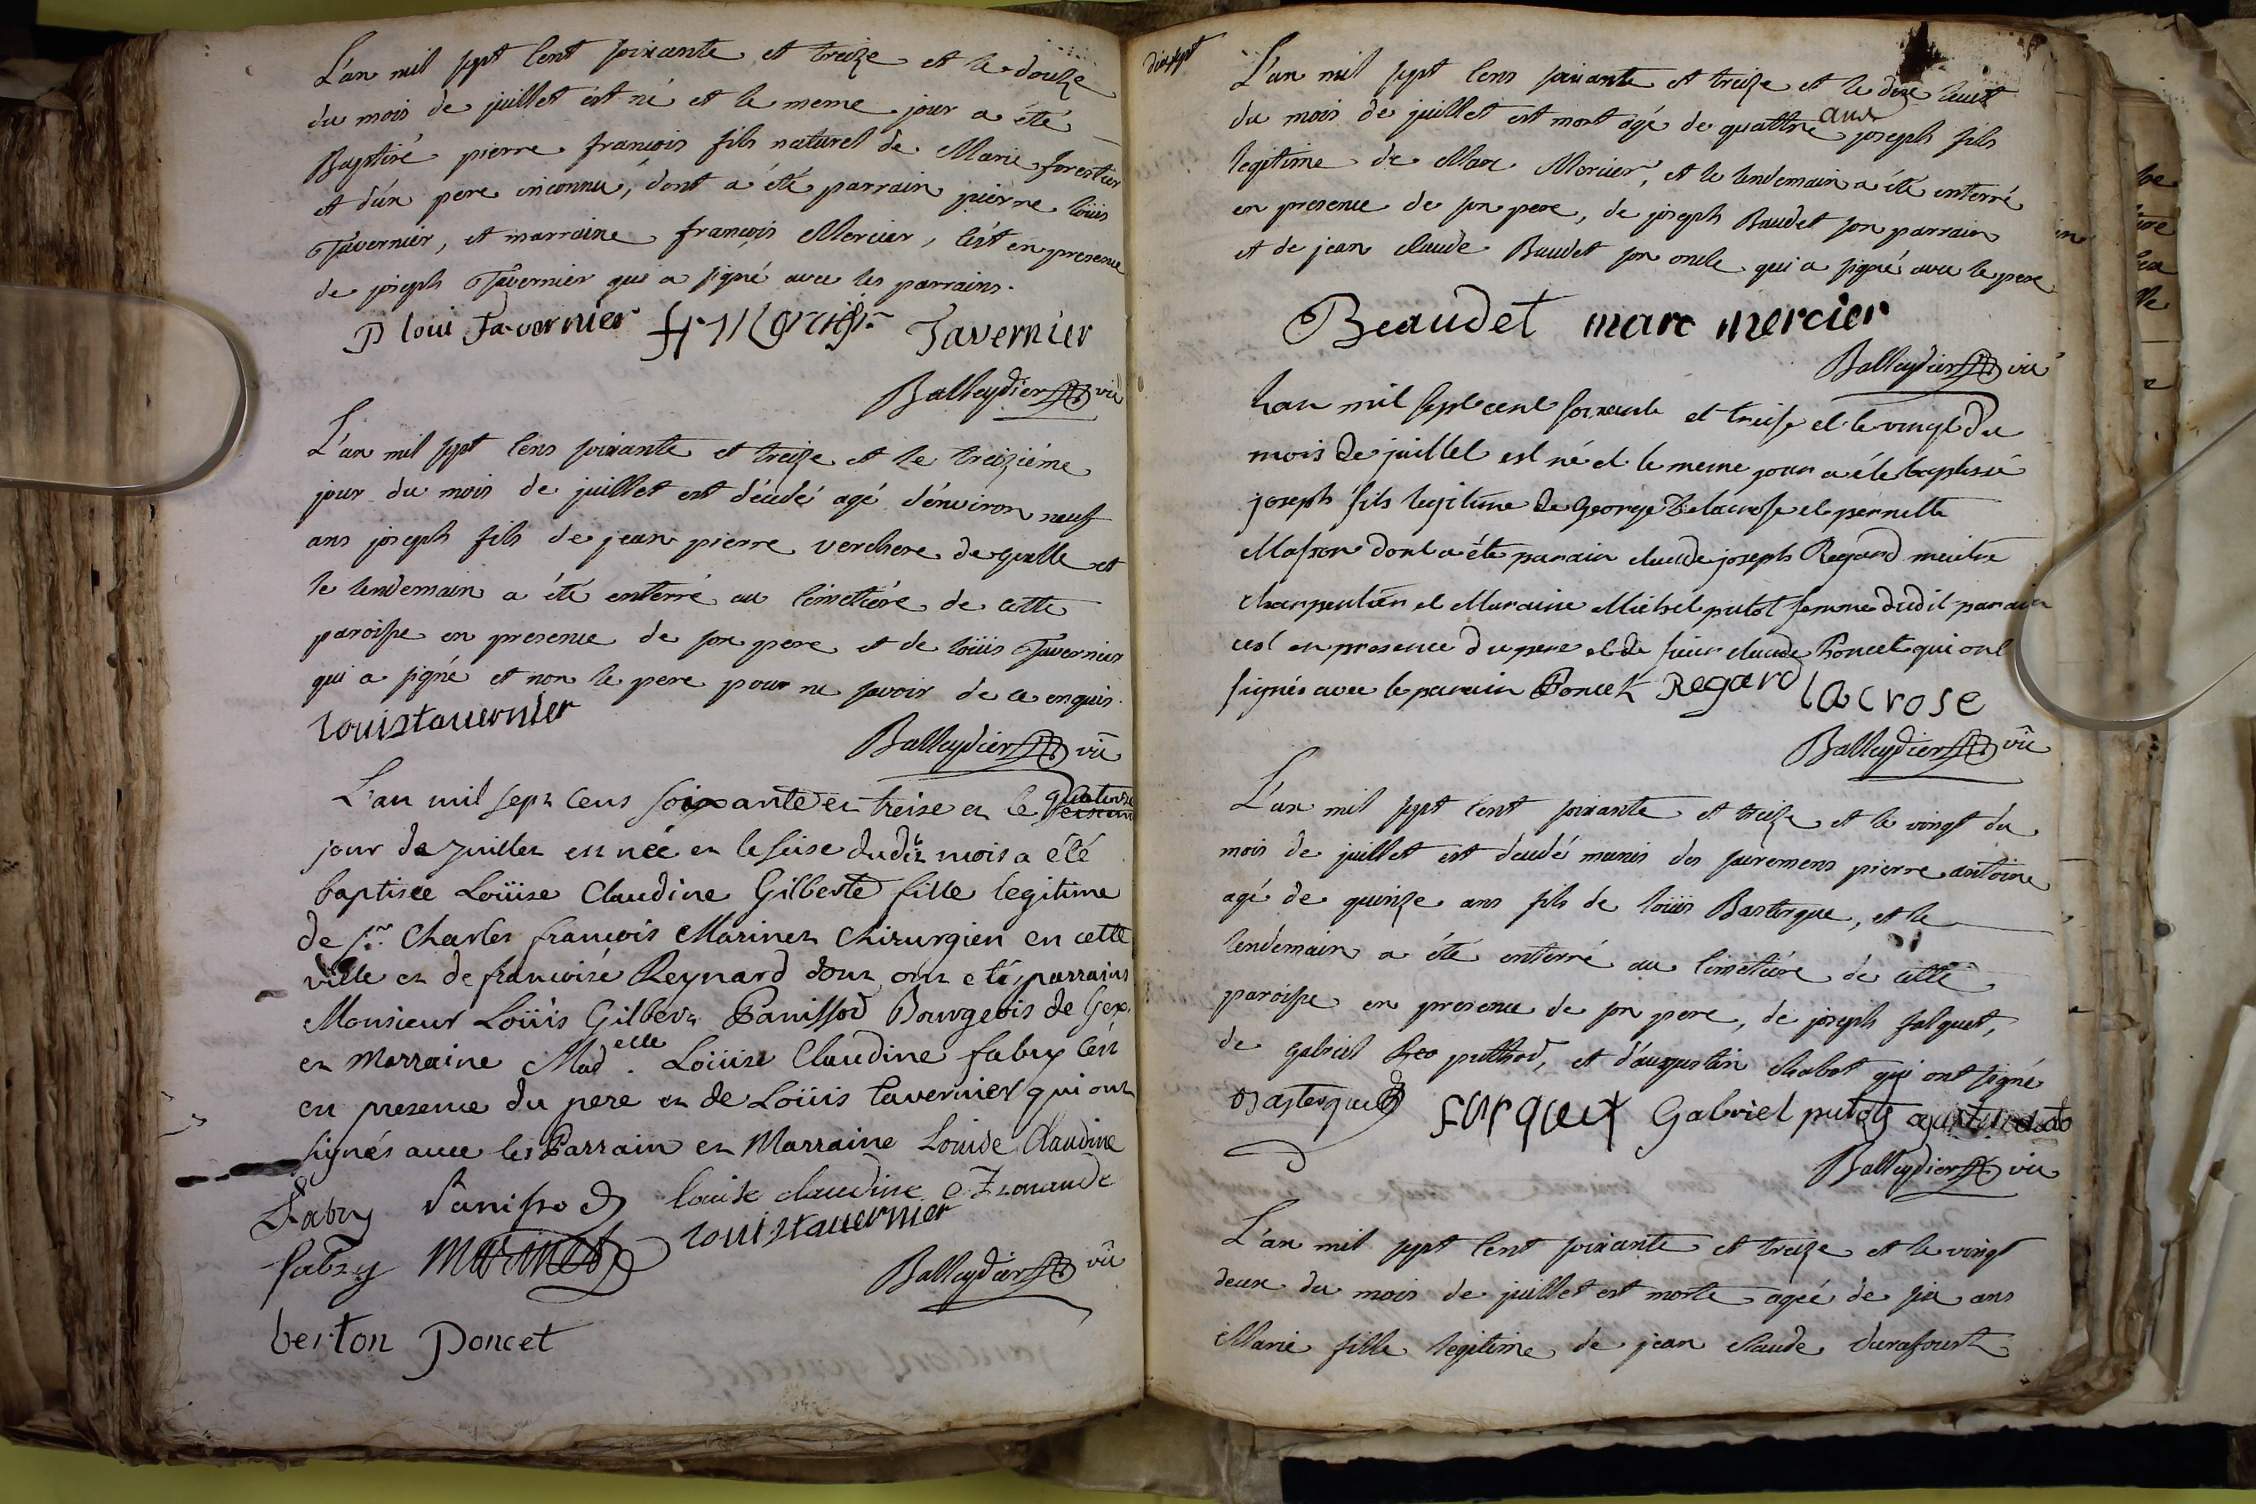 L'an mil sept Cent soixante et treize et le douze
du mois de juillet est né et le meme jour a été
Baptisé pierre françois fils naturel de Marie forestier
et d'un pere inconnu, dont a été parrain pierre loüis
Tavernier, et marraine françois Mercier, c'est en presence
de joseph Tavernier qui a signé avec les parrains.
P loui Tavernier Tavernier
Balleydier vic
L'an mil sept Cens soixante et treize et le treiziéme
jour du mois de juillet est décedé agé d'environ neuf
ans joseph fils de jean pierre verchere de et
le lendemain a été enterré au Cimetiére de cette
paroisse en presence de son pere et de loüis Tavernier
qui a signé et non le pere pour ne savoir de ce enquis.
Louis tavernier
Balleydier vic
L'an mil sept Cens soixante et treise et le quatorze
jour de juillet est née et le seise dudit mois a été
baptisée Loüise Claudine Gilberte fille legitime
de sr. Charles françois Marinet Chirurgien en cette
ville et de francoise Reynard dont ont eté parrains
Monsieur Loüis Gilbert Panissod Bourgeois de Gex,
et Marraine Mad.elle Loüise Claudine fabry C'est
en presence du pere et de Loüis tavernier qui ont
signés avec les Parrain et Marraine Louise Claudine
Fabry Panissod louise claudine
fabry Marinet Louis tavernier
Balleydier vic
berton Poncet
dix sept
L'an mil sept Cens soixante et treize et le dix
du mois de juillet est mort agé de quattre ans joseph fils
legitime de Marc Mercier, et le lendemain a été enterré
en presence de son pere, de joseph Baudet son parrain
et de jean claude Baudet son oncle qui a signé avec le pere
Beaudet marc mercier
Balleydier vic
Lan mil sept cent soixante et treise et le vingt du
mois de juillet est né et le meme jour a été baptissé
joseph fils legitime de George Delacrose et pernette
Masson dont a été parain claude joseph Regard meitre
charpentier et Maraine Michel putot femme dudit parain
cest en presence du pere et de sieur claude Poncet qui ont
signés avec le parain Poncet Regard lacrose
Balleydier vic
L'an mil sept Cent soixante et treize et le vingt du
mois de juillet est decedé munis des sacremens pierre antoine
agé de quinze ans fils de loüis Basterque, et le
lendemain a été enterré au Cimetiére de cette
paroisse en presence de son pere, de joseph falquet,
de gabriel puthod, et d'augustin chabot qui ont signé
Basterque Gabriel
Balleydier vic
L'an mil sept Cent soixante et treize et le vingt
deux du mois de juillet est morte agée de six ans
Marie fille legitime de jean claude durafourt